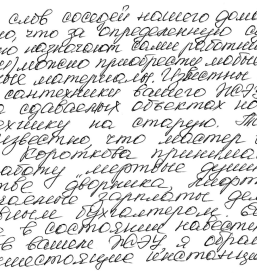 слов соседей нашего дома
но, что за определенную с
но назначают сами работни
можно приобрести любы
ные материалы. Известны
сантехники вашего ЖЭУ
о сдаваемых объектах но
ехнику на старую. Т
известно, что мастер
Короткова принима
аботу „мертвые души
стве дворника, лифт
зарплаты дел
вным бухгалтером. в
в состоянии навести
в вашем ЖЭУ, я обра
шестоящие инстанци